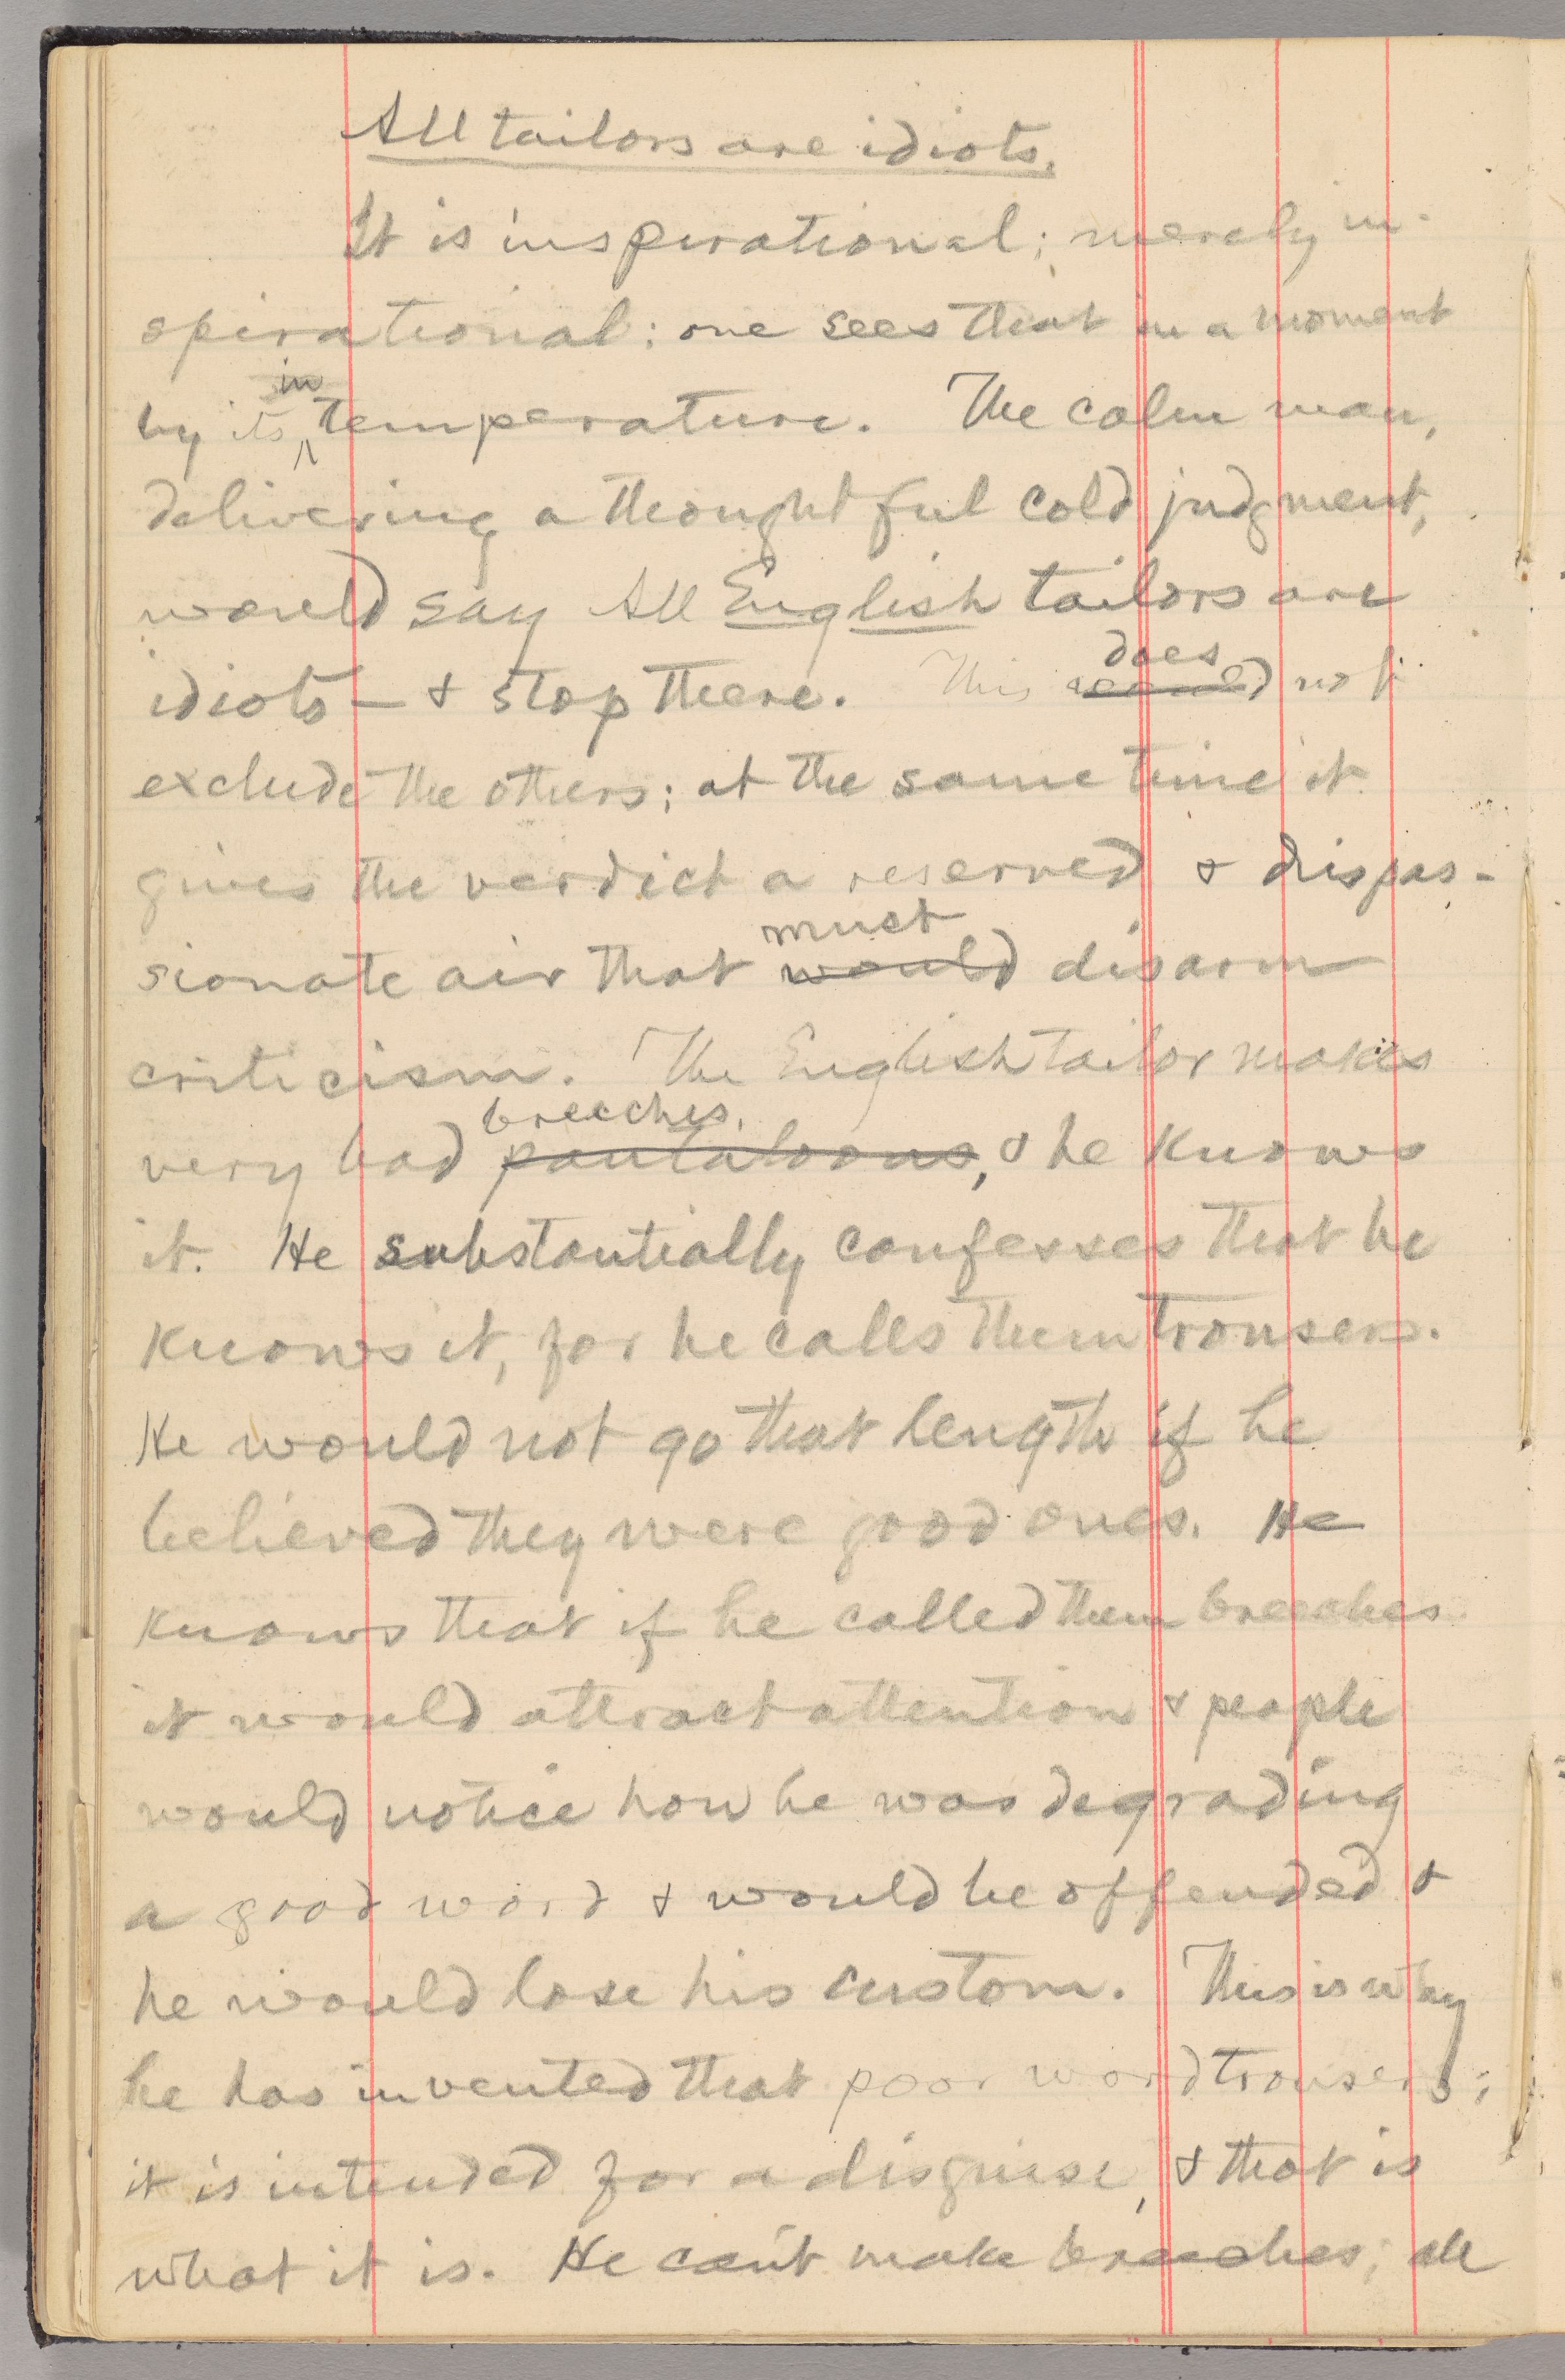 All tailors are idiots.
It is inspirational; merely in-
spirational: one sees that in a moment
in
by its temperature. The calm man,
delivering a thoughtful cold judgment,
would say All English tailors are
does
idiots — & stop there. This would not
exclude the others; at the same time it
gives the verdict a reserved & dispas-
must
sionate air that would disarm
criticism. The English tailor makes
breeches,
very bad pantaloons, & he knows
it. He substantially confesses that he
knows it, for he calls them trousers.
He would not go that length if he
believed they were good ones. He
knows that if he called them breeches
it would attract attention & people
would notice how he was degrading
a good word & would be offended &
he would lose his custom. This is why
he has invented that poor word trousers;
it is intended for a disguise, & that is
what it is. He can't make breeches; all